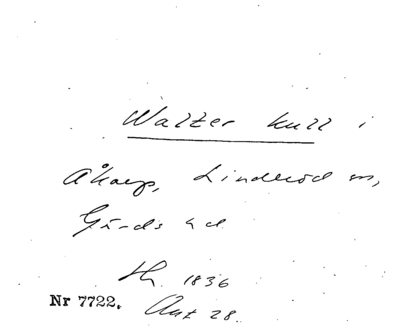 Walzer kull i
Åkarp, Linderöd sn,
Gärds hd
1836
Nr 7722.
28